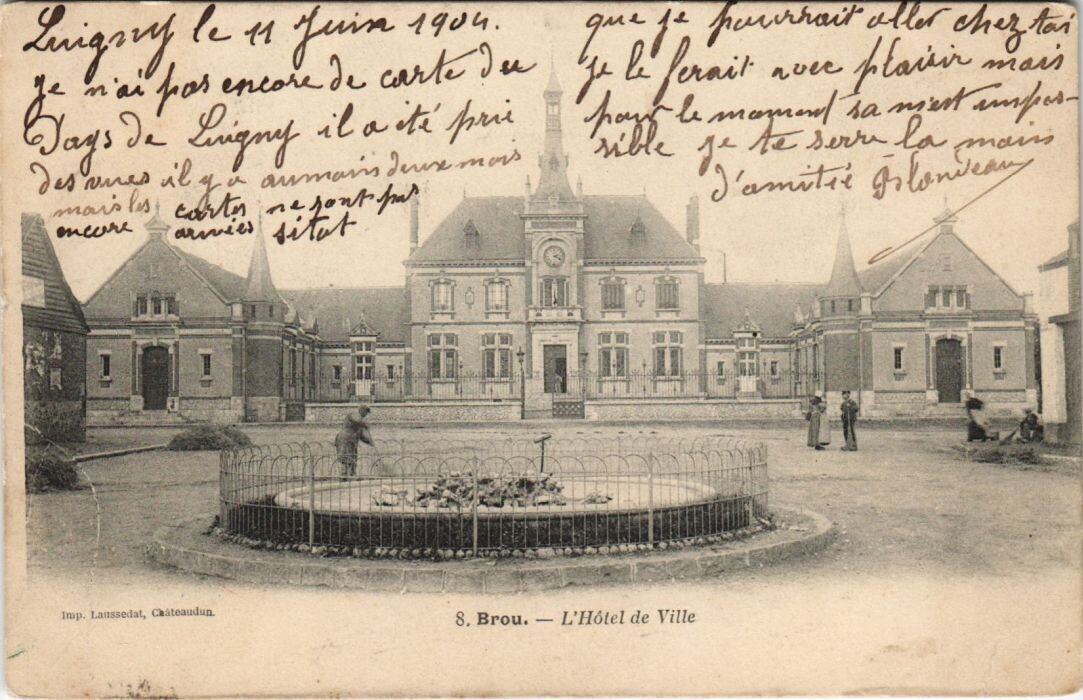 Luigny le 11 Juin 1904.
je n'ai pas encore de carte du
Pays de Luigny il a été prie
des vues il y a aumains deux mois
mais les cartes ne sont pas
encore arivées sitot
que je pourrait aller chez toi
je le ferait avec plaisir mais
pour le momend sa n'est impos-
sible je te serre la main
d'amitié Blondeau
Imp. Laussedat, Châteaudun.
8. Brou. — L'Hôtel de Ville